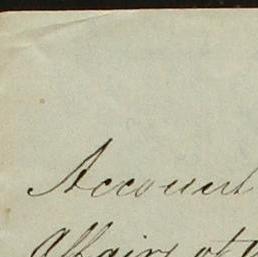 Account
Affairs of